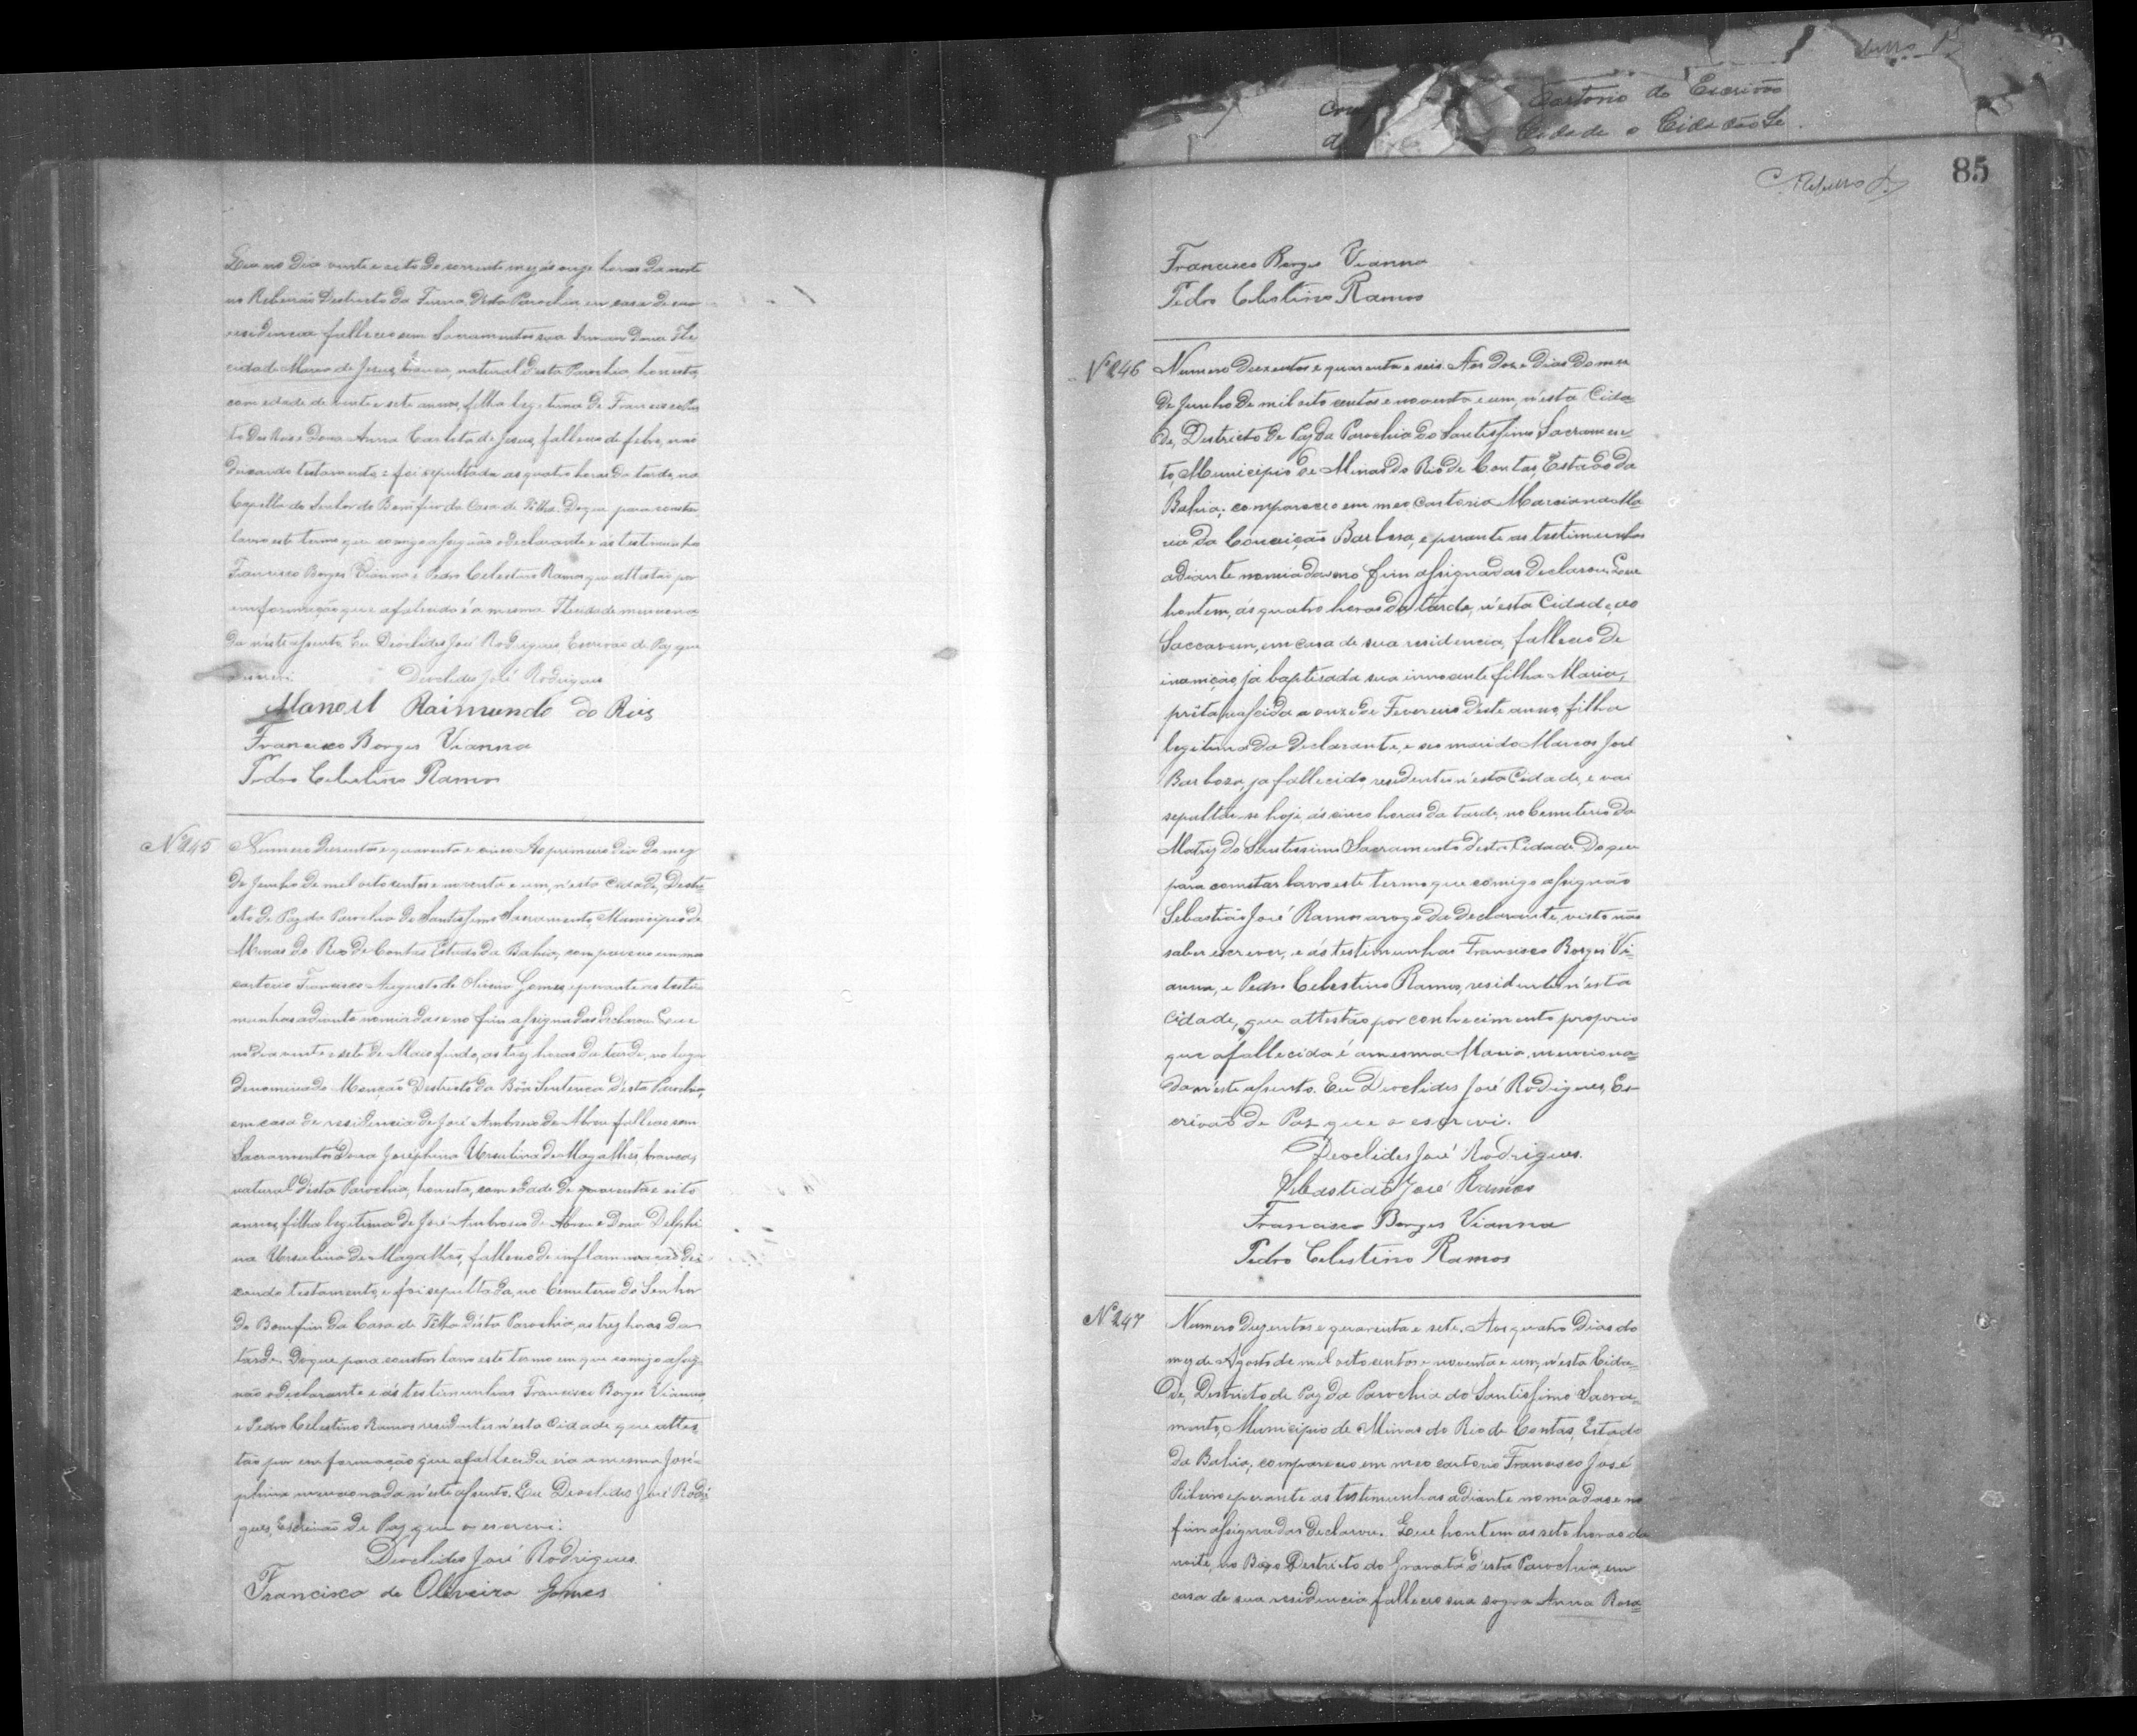 Que no dia vinte e oito do corrente mez ás onze horas da noute
no Ribeirão Districto da Furna desta Parochia, em casa de sua
residencia falleceo sem Sacramentos sua Irman Dona Fle
cidade Maria de Jesus, branca, natural desta Parochia, honesta,
com edade de vinte e sete annos, filha legitima de Francisco
dos Reis e Dona Anna Carlota de Jesus, falleceo de febre, não
deixando testamento: e foi sepultada as quatro horas da tarde, na
Capella do Senhor do Bomfim da Casa de Têlha. Do que para constar
lavro este termo que comigo assignão o declarante e as testimunhas
Francisco Borges Vianna e Pedro Celestino Ramos que attestão por
emformação que a falecida é a mesma Flecidade menciona
da n'este assento. Eu Deoclides José Rodrigues Escrivão de Paz que
escrevi. Deoclides José Rodrigues
Manoel Raimundo do Reis
Francisco Borges Vianna
Pedro Celestino Ramos
Nº 245 Numero Duzentos e quarenta e cinco. Ao primeiro dia do mez
de Junho de mil oito centos e noventa e um, n'esta Cidade, Distri
cto de Paz da Parochia do Santissimo Sacramento, Municipio de
Minas do Rio de Contas Estado da Bahia, compareceo em meo
cartorio Francisco Augusto de Oliveira Gomes, e perante as testi
munhas adiante nomiadas e no fim assignadas declarou: Que
no dia vinte e sete de Maio findo, as trez horas da tarde, no lugar
denominado Monção Districto da Bôa Sentença d'esta Parochia,
em casa de residencia de José Ambrosio de Abreu falleceo sem
Sacramentos Dona Josephina Ursulina de Magalhês, branca,
natural d'esta Parochia, honesta, com edade de quarenta e oito
annos, filha legitima de José Ambrosio de Abreu e Dona Delphi
na Ursulina de Magalhês, falleceo de inflammação dei
xando testamento, e foi sepultada, no Cemiterio do Senhor
do Bomfim da Casa de Têlha d'esta Parochia, as trez horas da
tarde. Do que para constar lavro este termo em que comigo assig
não o declarante e as testimunhas Francisco Borges Vianna,
e Pedro Celestino Ramos residentes n'esta Cidade que attes
tão por emformação que a fallecida éra a mesma José-
phina mencionada n'este assento. Eu Deoclides José Rodri
gues, Escrivão de Paz que o escrevi.
Deoclides José Rodrigues
Francisco de Oliveira Gomes
Cartorio do Escrivão
Cidade o Cidadão
Ribeiro
85
Francisco Borges Vianna
Pedro Celestino Ramos
Nº 246 Numero Duzentos e quarenta e seis. Aos doze dias do mez
de Junho de mil oito centos e noventa e um, n'esta Cida-
de, Districto de Paz da Parochia do Santissimo Sacramen-
to, Municipio de Minas do Rio de Contas, Estado da
Bahia; compareceo em meo Cartorio Marciana Ma
ria da Conceição Barbosa, e perante as testimunhas
adiante nomiadas e no fim assignadas declarou: Que
hontem, ás quatro horas da tarde, n'esta Cidade, ao
em casa de sua residencia, falleceo de
inanição, ja baptisada sua innocente filha Maria,
prêta, nascida a onze de Fevereiro d'este anno, filha
legitima da declarante, e seo marido Marcos José
Barbosa, ja fallecido, residentes n'esta Cidade, e vai
sepultar-se hoje, ás cinco horas da tarde, no Cemiterio da
Matriz do Santissimo Sacramento d'esta Cidade. Do que
para constar lavro este termo que comigo assignão
Sebastião José Ramos a rogo da declarante, visto não
saber escrever, e ás testimunhas Francisco Borges Vi-
anna, e Pedro Celestino Ramos, residentes n'esta
Cidade, que attestão por conhecimento proprio
que a fallecida é a mesma Maria menciona-
da n'este assento. Eu Deoclides José Rodrigues, Es-
crivão de Paz que o escrevi.
Deoclides José Rodrigues.
Sebastião José Ramos
Francisco Borges Vianna
Pedro Celestino Ramos
Nº 247 Numero Duzentos e quarenta e sete. Aos quatro dias do
mez de Agosto de mil oito centos e noventa e um, n'esta Cida-
de, Districto de Paz da Parochia do Santissimo Sacra-
mento, Municipio de Minas do Rio de Contas, Estado
da Bahia; compareceo em meo cartorio Francisco José
Ribeiro e perante as testimunhas adiante nomiadas e no
fim assignadas declarou. Que hontem as sete horas da
noite, no Districto do Gravatá d'esta Parochia, em
casa de sua residencia falleceo sua sogra Anna Rosa-